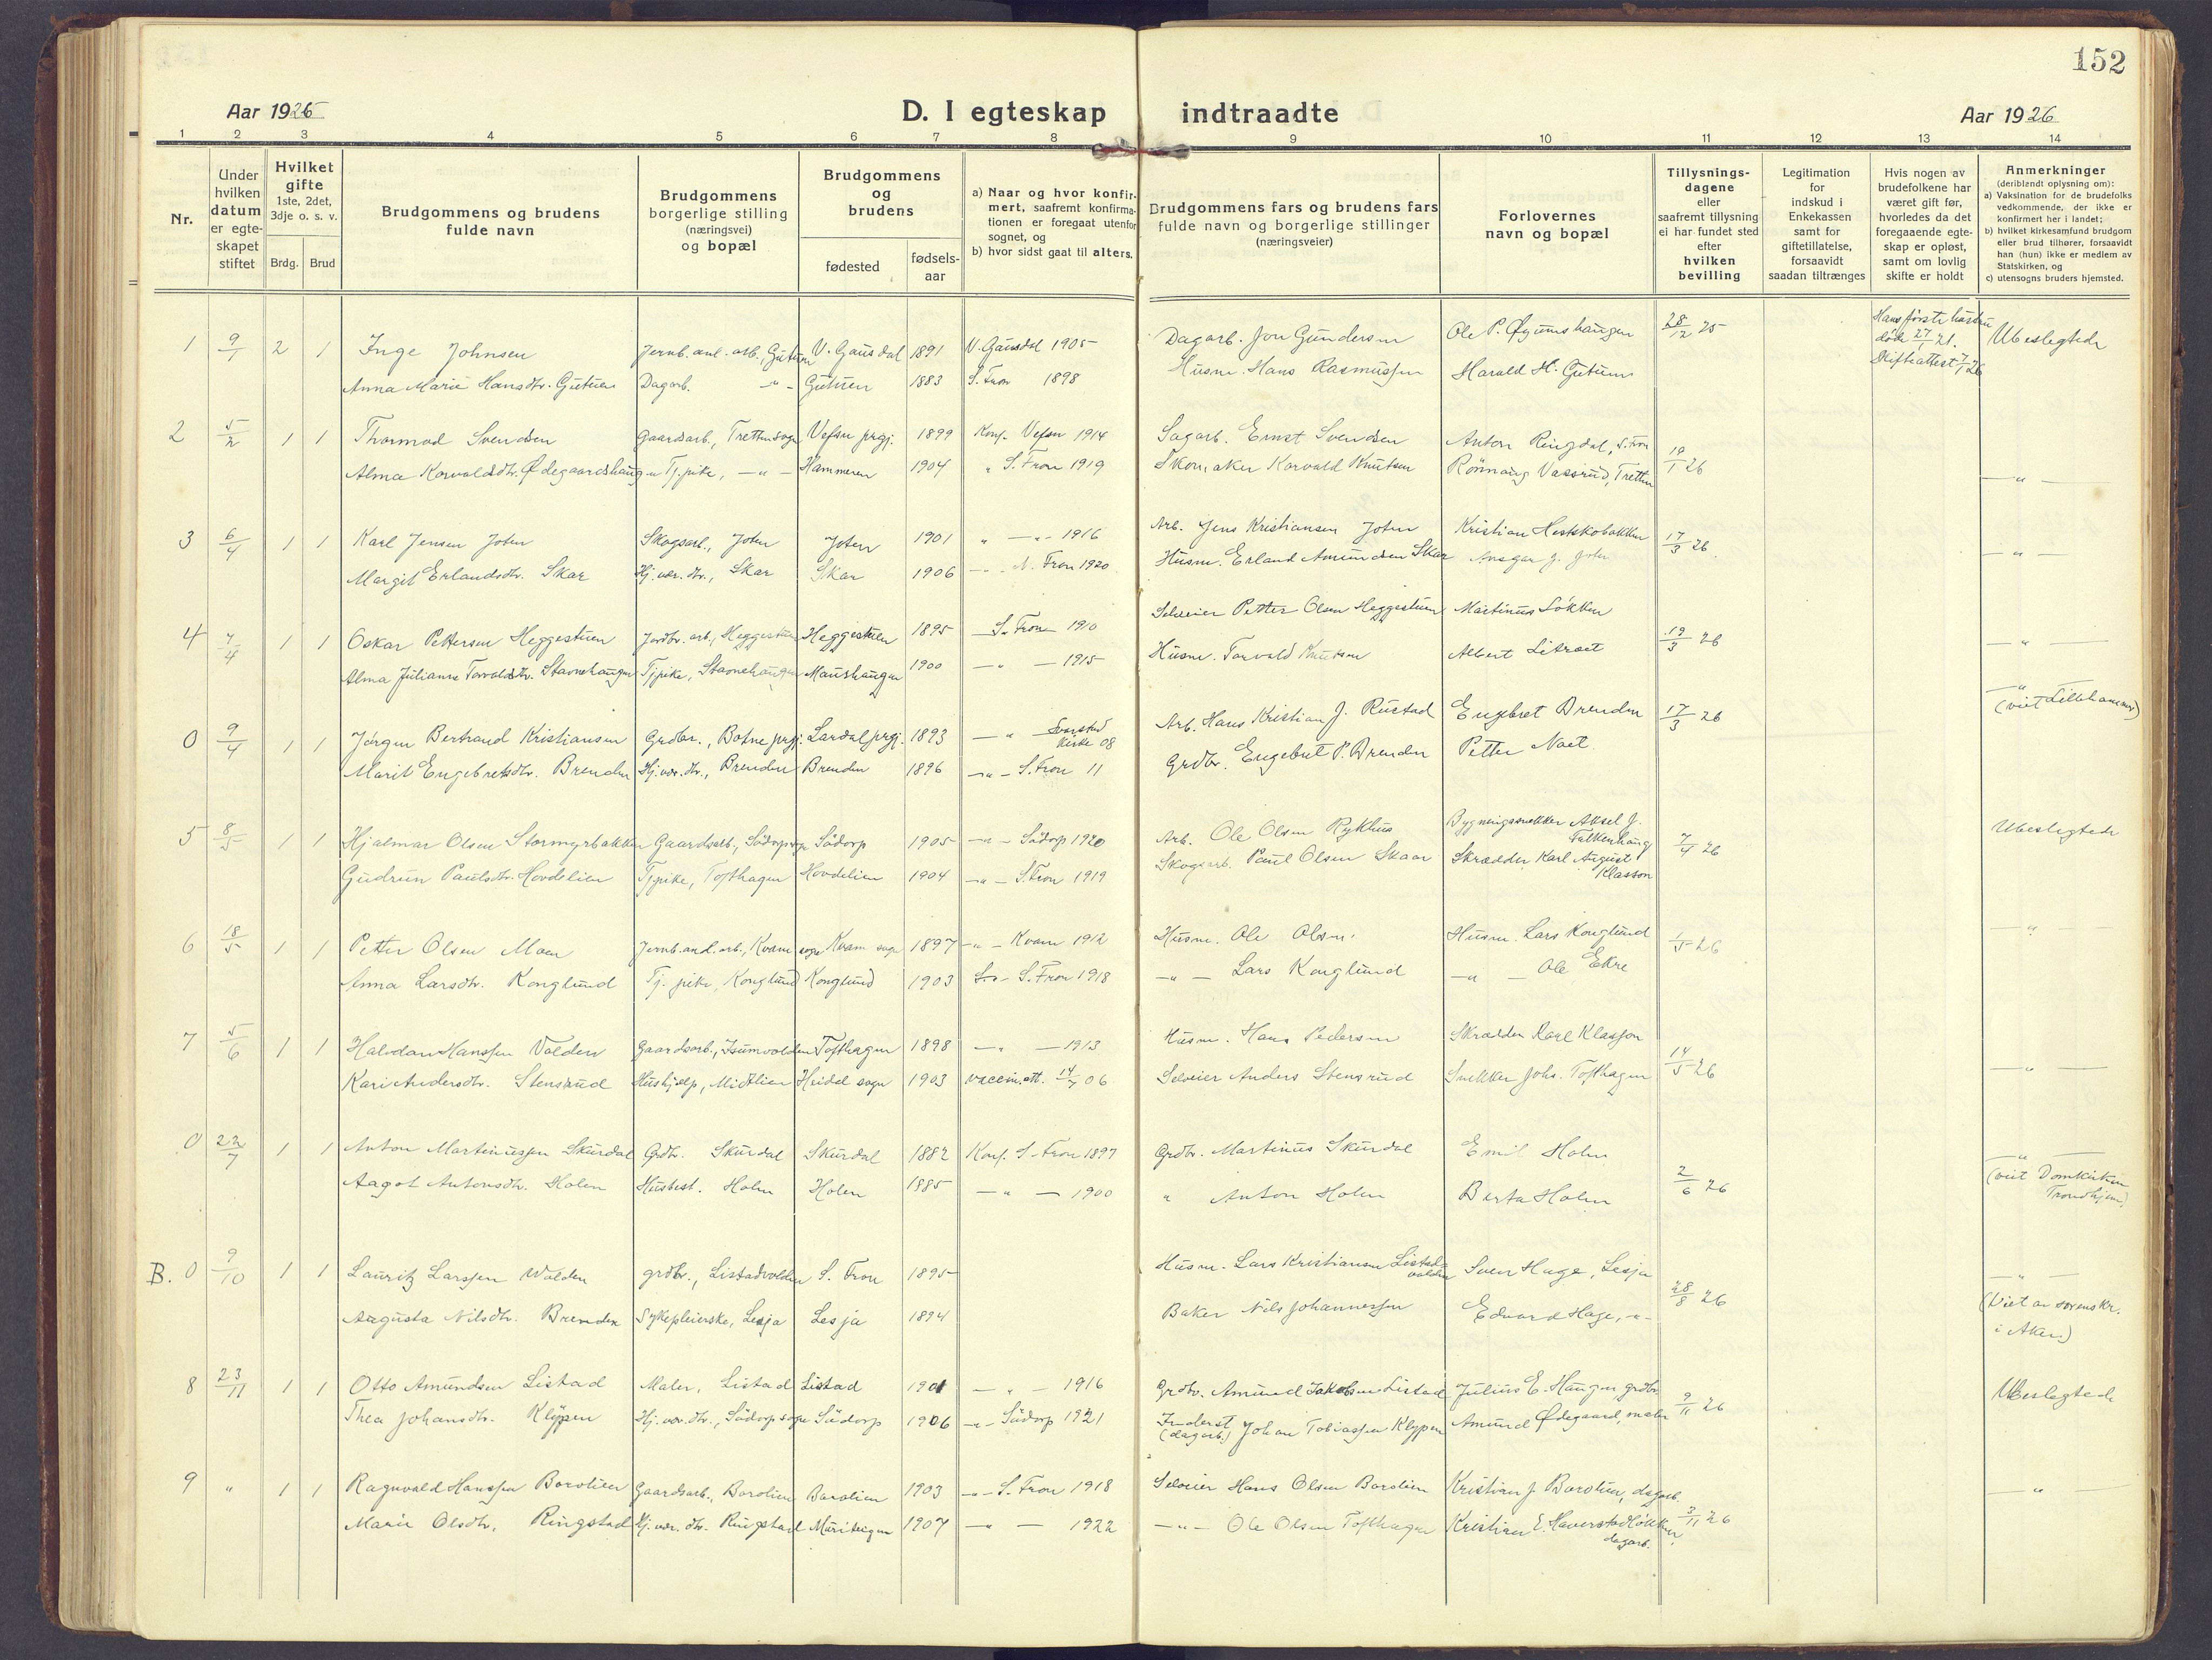 152
Aar 1926
D. I egteskap indtraadte
Aar 1926
1 2 3 4 5 6 7 8 9 10 11 12 13 14
Nr.
Under hvilken datum er egteskapet stiftet
Hvilket gifte 1ste, 2det, 3dje o. s. v.
Brdg. Brud
Brudgommens og brudens fulde navn
Brudgommens borgerlige stilling (næringsvei) og bopæl
Brudgommens og brudens
fødested
fødsels-aar
a) Naar og hvor konfirmert, saafremt konfirmationen er foregaat utenfor sognet, og
b) hvor sidst gaat til alters.
Brudgommens fars og brudens fars fulde navn og borgerlige stillinger (næringsveier)
Forlovernes navn og bopæl
Tillysningsdagene eller saafremt tillysning ei har fundet sted efter hvilken bevilling
Legitimation for indskud i Enkekassen samt for giftetillatelse, forsaavidt saadan tiltrænges
Hvis nogen av brudefolkene har været gift før, hvorledes da det foregaaende egteskap er opløst, samt om lovlig skifte er holdt
Anmerkninger (deriblandt oplysning om):
a) Vaksination for de brudefolks vedkommende, der ikke er konfirmert her i landet;
b) hvilket kirkesamfund brudgom eller brud tilhører, forsaavidt han (hun) ikke er medlem av Statskirken, og
c) utensogns bruders hjemsted.
1 9/1 2 1 Inge Johnsen Jernb. anl. arb., Gutuen V. Gausdal 1891 V. Gausdal 1905 Dagarb. Jon Gundersen Ole P. Øyumshaugen 28/12 25 Hans første hustru døde 27/1 21. Skifteattest 7/1 26 Ubeslegtede
Anna Marie Hansdtr. Gutuen Dagarb. -"- Gutuen 1883 S. Fron 1898 Husm. Hans Rasmussen Harald H. Gutuen
2 5/2 1 1 Thormod Svendsen Gaardsarb., Tretten sogn Vefsn prgj. 1899 Konf. Vefsn 1914 Sagarb. Ernst Svendsen Anton Ringdal, S. Fron 19/1 26
Alma Korvaldsdtr. Ødegaardshaugen Tj.pike, -"- Hammeren 1904 " S. Fron 1919 Skomaker Korvald Knutsen Rønnaug Vassrud, Tretten -"-
3 6/4 1 1 Karl Jensen Joten Skogsarb., Joten Joten 1901 " -"- 1916 Arb. Jens Kristiansen Joten Kristian Hestskobakken 17/3 26.
Margit Erlandsdtr. Skar Hj.vær. dtr., Skar Skar 1906 -"- N. Fron 1920 Husm. Erland Amundsen Skar Ansgar J. Joten -"-
4 7/4 1 1 Oskar Pettersen Heggestuen Jordbr. arb., Heggestuen Heggestuen 1895 -S. Fron- 1910 Selveier Petter Olsen Heggestuen Martinus Løkken 19/3 26 -"-
Alma Julianne Torvaldsdtr. Stavnehaugen Tj.pike, Stavnehaugen Maushaugen 1900 -"- 1915 Husm. Torvald Knutsen Albert Litræet
0 9/4 1 1 Jørgen Bertrand Kristiansen Grdbr., Botne prgj. Lardal prgj. 1893 -"- Svarstad Kirke 08 Arb. Hans Kristian J. Rustad Engebret Brenden 17/3 26 -"- (viet Lillehammer)
Marit Engebretsdtr. Brenden Hj.vær. dtr., Brenden Brenden 1896 -"- S. Fron 11 Grdbr. Engebret P. Brenden Petter Noet
5 8/5 1 1 Hjalmar Olsen Stormyrbakken Gaardsarb., Sødorp sogn Sødorp 1905 -"- Sødorp 1920 Arb. Ole Olsen Rykhus Bygningssnekker Aksel J. Falkenhaug 7/4 26 Ubeslegtede
Gudrun Paulsdtr. Hovdelien Tj.pike, Tofthagen Hovdelien 1904 -"- S. Fron 1919 Skogsarb. Paul Olsen Skaar Skrædder Karl August Klasson
6 18/5 1 1 Petter Olsen Moen Jernb. anl. arb., Kvam sogn Kvam sogn 1897 -"- Kvam 1912 Husm. Ole Olsen Husm. Lars Konglund 1/5 26 -"-
Anna Larsdtr. Konglund Tj. pike, Konglund Konglund 1903 S. Fron 1918 -"- Lars Konglund -"- Ole Ekre
7 5/6 1 1 Halvdan Hanssen Volden Gaardsarb., Isumvolden Tofthagen 1898 -"- 1913 Husm. Hans Pedersen Skrædder Karl Klasson 14/5 26
Kari Andersdtr. Stensrud Hushjelp, Midtlien Heidal sogn 1903 vaccin. att. 14/7 06 Selveier Anders Stensrud Snekker Johs. Tofthagen -"-
0 22/7 1 1 Anton Martinussen Skurdal Grdbr. Skurdal Skurdal 1882 Konf. S. Fron 1897 Grdbr. Martinus Skurdal Emil Holen 2/6 26 -"- (viet Domkirken Trondhjem)
Aagot Antonsdtr. Holen Husbest. Holen Holen 1885 -"- 1900 " Anton Holen Berta Holen
B. 0 9/10 1 1 Lauritz Larssen Volden grdbr., Listadvolden S. Fron 1895 Husm. Lars Kristiansen Listadvolden Sven Hage, Lesja 28/8 26 -"- (Viet av sorenskr. i Aker)
Augusta Nilsdtr. Brenden Sykepleierske, Lesja Lesja 1894 Baker Nils Johannessen Edvard Hage, -"-
8 23/11 1 1 Otto Amundsen Listad Maler, Listad Listad 1901 -"- 1916 Grdbr. Amund Jakobsen Listad Julius E. Haugen grdbr. 9/11 26 Ubeslegtede
Thea Johansdtr. Klypen Hj.vær. dtr., Sødorp sogn Sødorp 1906 -"- Sødorp 1921 Inderst (dagarb.) Johan Tobiassen Klypen Amund Ødegaard, maler
9 " 1 1 Ragnvald Hanssen Borolien Gaardsarb., Borolien Borolien 1903 -"- S. Fron 1918 Selveier Hans Olsen Borolien Kristian J. Borolien, dagarb. 3/11 26 -"-
Marie Olsdtr. Ringstad Hj.vær. dtr. Ringstad Muriteigen 1907 -"- 1922 -"- Ole Olsen Tofthagen Kristian E. Haverstadløkken, dagarb.